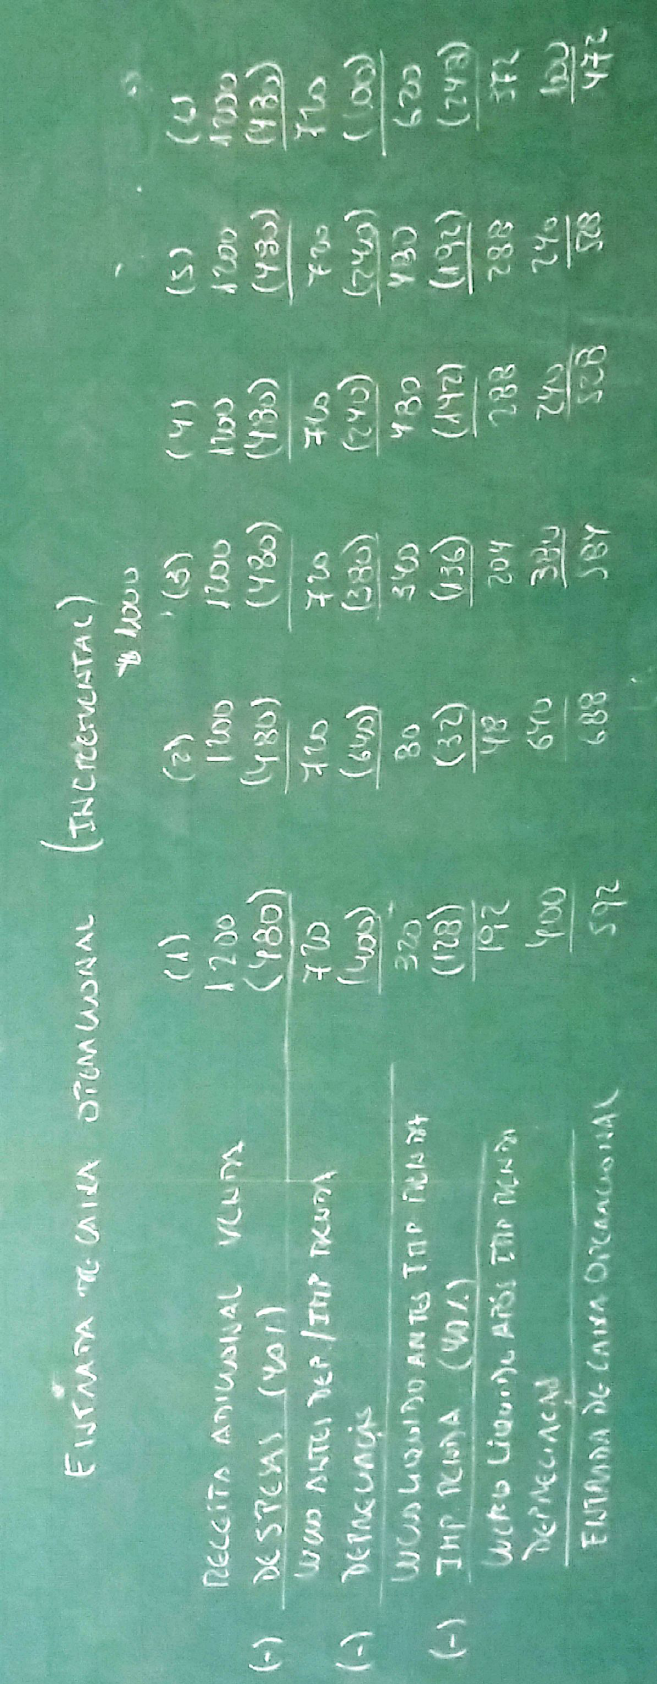 ENTRADA DE CAIXA OPERACIONAL (INCREMENTAL)
$ 1000
(1) (2) (3) (4) (5) (6)
RECEITA ADICIONAL VENDA 1200 1200 1200 1200 1200 1200
(-) DESPESAS (40%) (480) (480) (480) (480) (480) (480)
LUCRO ANTES DEP/IMP RENDA 720 720 720 720 720 720
(-) DEPRECIAÇÃO (400) (640) (380) (240) (240) (100)
LUCRO LIQUIDO ANTES IMP RENDA 320 80 340 480 480 620
(-) IMP RENDA (40%) (128) (32) (136) (192) (192) (248)
LUCRO LIQUIDO APÓS IMP RENDA 192 48 204 288 288 372
DEPRECIACAO 400 640 380 240 240 100
ENTRADA DE CAIXA OPERACIONAL 592 688 584 528 528 472